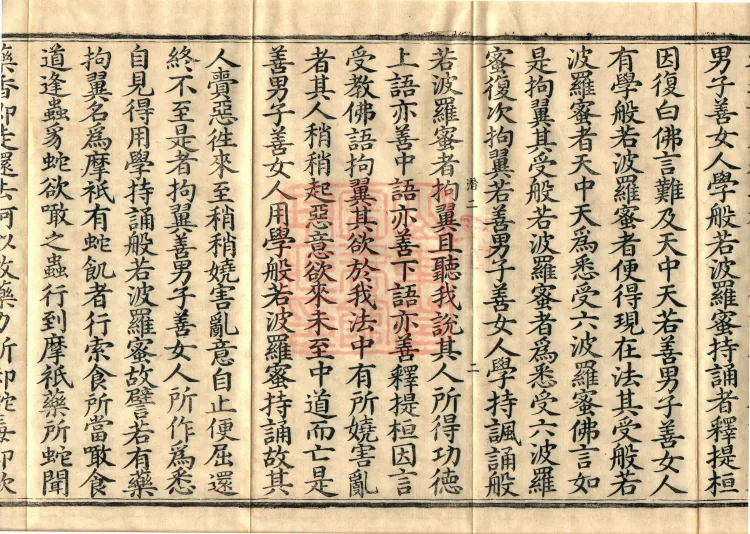 男子善女人學般若波羅蜜持誦者釋提桓
因復白佛言難及天中天若善男子善女人
有學般若波羅蜜者便得現在法其受般若
波羅蜜者天中天為悉受六波羅蜜佛言如
是拘翼其受般若波羅蜜者為悉受六波羅
蜜復次拘翼若善男子善女人學持諷誦般
潜二 二
若波羅蜜者拘翼且聽我說其人所得功德
上語亦善中語亦善下語亦善釋提桓因言
受教佛語拘翼其欲於我法中有所嬈害亂
者其人稍稍起惡意欲來未至中道而亡是
善男子善女人用學般若波羅蜜持誦故其
人賷惡徃來至稍稍嬈害亂意自止便屈還
終不至是者拘翼善男子善女人所作為悉
自見得用學持誦般若波羅蜜故譬若有藥
拘翼名為摩祇有蛇飢者行索食所當噉食
道逢蟲豸蛇欲噉之蟲行到摩祇藥所蛇聞
藥香即走還去何以故藥力所却蛇毒即歇